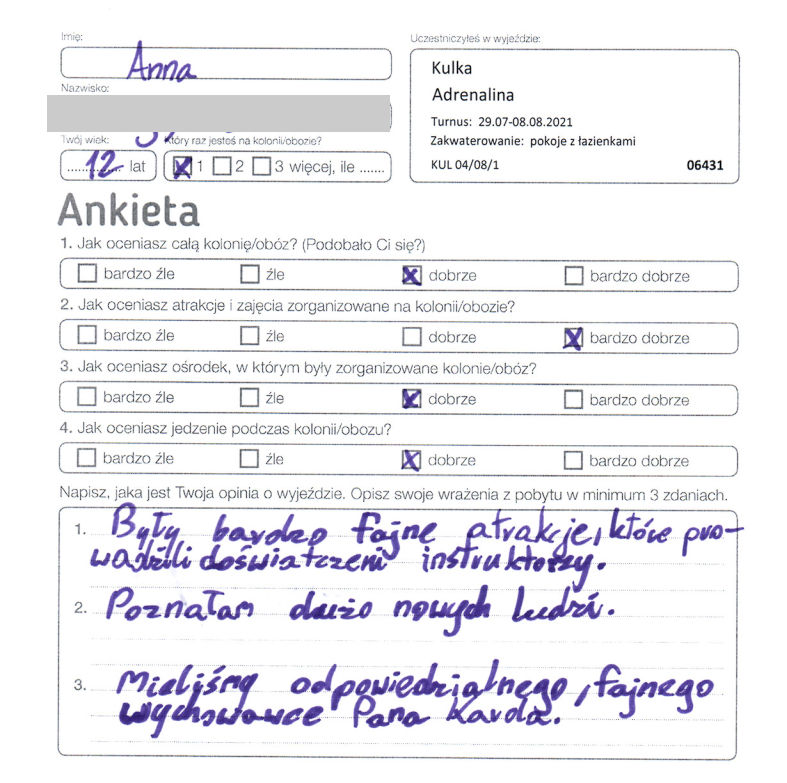 Imię:
Anna
Nazwisko:
Twój wiek:
12 lat
Który raz jesteś na kolonii/obozie?
1 2 3 więcej, ile .......
Uczestniczyłeś w wyjeździe:
Kulka
Adrenalina
Turnus: 29.07-08.08.2021
Zakwaterowanie: pokoje z łazienkami
KUL 04/08/1 06431
Ankieta
1. Jak oceniasz całą kolonię/obóz? (Podobało Ci się?)
bardzo źle źle dobrze bardzo dobrze
2. Jak oceniasz atrakcje i zajęcia zorganizowane na kolonii/obozie?
bardzo źle źle dobrze bardzo dobrze
3. Jak oceniasz ośrodek, w którym były zorganizowane kolonie/obóz?
bardzo źle źle dobrze bardzo dobrze
4. Jak oceniasz jedzenie podczas kolonii/obozu?
bardzo źle źle dobrze bardzo dobrze
Napisz, jaka jest Twoja opinia o wyjeździe. Opisz swoje wrażenia z pobytu w minimum 3 zdaniach.
1. Były bardzo fajne atrakcje, które pro-
wadzili doświatczeni instruktorzy.
2. Poznałam dużo nowych ludzi.
3. Mieliśmy odpowiedzialnego, fajnego
wychowawce Pana